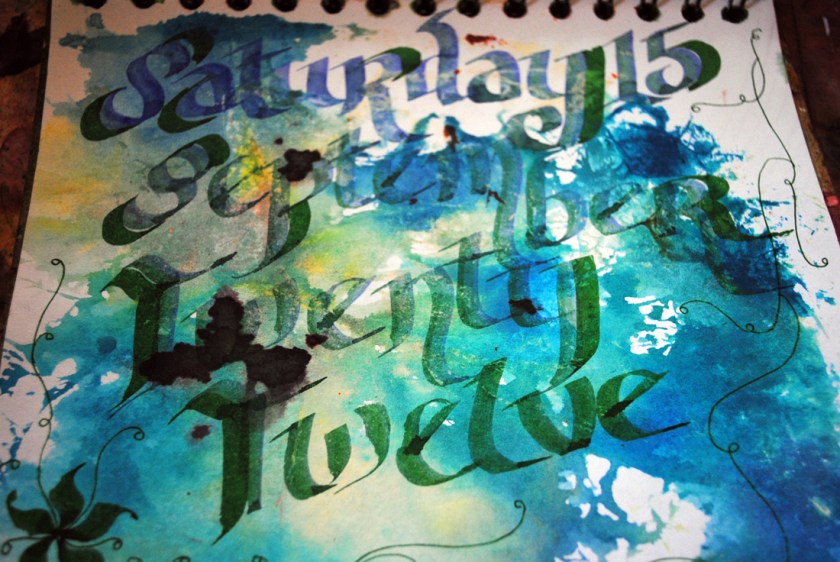 Saturday 15
September
Twenty
Twelve